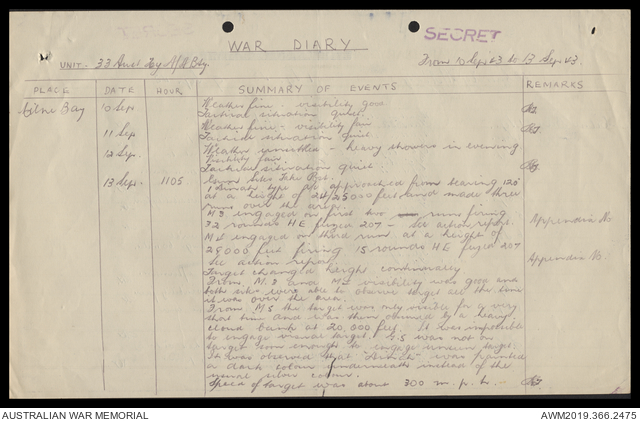 WAR DIARY
SECRET
UNIT:- 33 Aust. Hy A/A Bty.
From 10 Sep 43 to 13 Sep 43.
PLACE DATE HOUR SUMMARY OF EVENTS REMARKS
Milne Bay 10 Sep Weather fine - visibility good
Tactical situation quiet.
11 Sep Weather fine - visibility fair
Tactical situation quiet
12 Sep. Weather unsettled - heavy showers in evening
Visibility fair
Tactical situation quiet.
13 Sep. 1105
1 type approached from bearing 120°
at a height of 24/25000 feet and made three
runs over the area.
engaged on first two runs firing
32 rounds HE fuzed 207 - See action report. Appendix No
engaged on third run at a height of
25000 feet firing 15 rounds HE fuzed 207
See action report. Appendix No.
Target changed height continually
From and visibility was good and
both sites were able to observe target all the time
it was over the area.
From the target was only visible for a very
short time and was then obscured by a heavy
cloud bank at 20,000 feet. It was impossible
to engage visual target. was not on
target soon enough to engage unseen target.
It was observed that was painted
a dark colour underneath instead of the
usual silver colour.
Speed of target was about 300 m.p.h.
AUSTRALIAN WAR MEMORIAL
AWM2019.366.2475